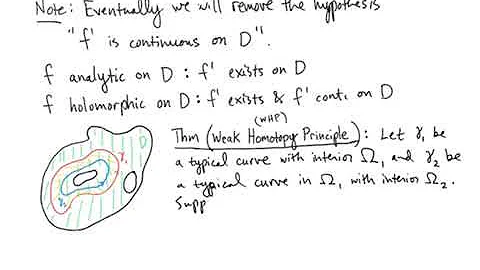 Note: Eventually we will remove the hypothesis
"f' is continuous on D".
f analytic on D : f' exists on D
f holomorphic on D : f' exists & f' cont. on D
(WHP)
Thm (Weak Homotopy Principle): Let γ₁ be
a typical curve with interior Ω₁ and γ₂ be
a typical curve in Ω₁ with interior Ω₂.
Supp
D
γ₁
γ₂